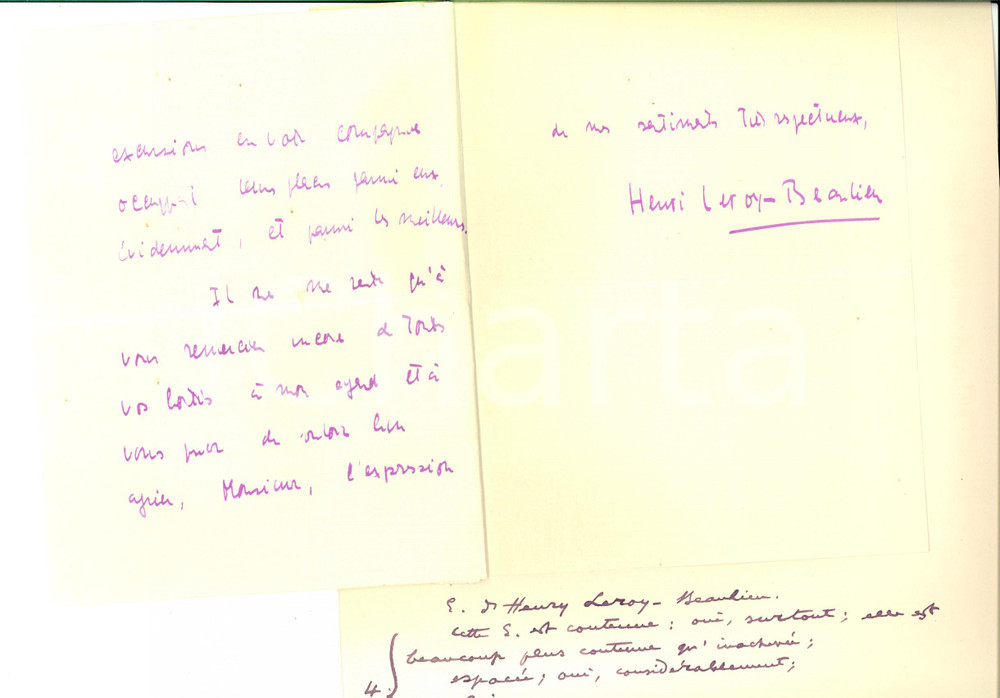 excursions en votre compagnie
occupent leurs places parmi eux
évidemment, et parmi les meilleurs.
Il ne me reste qu'à
vous remercier encore de toutes
vos bontés à mon égard et à
vous prier de vouloir bien
agréer, Monsieur, l'expression
de mes sentiments très respectueux,
Henri Leroy-Beaulieu
E. d'Henry Leroy-Beaulieu.
Cette E. est contenue : oui, surtout ; elle est
beaucoup plus contenue qu'inachevée ;
espacée ; oui, considérablement ;
4.
Charta